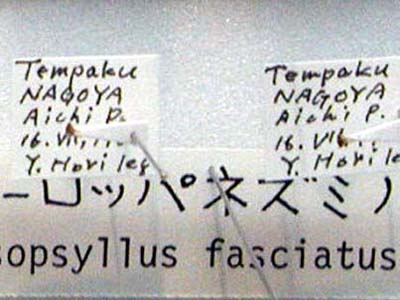 Tempaku
NAGOYA
Aichi P.
16. VII,
Y. Hori leg
Tempaku
NAGOYA
Aichi P.
16. VII.
Y. Hori le
ーロッパネズミノ
sopsyllus fasciatus